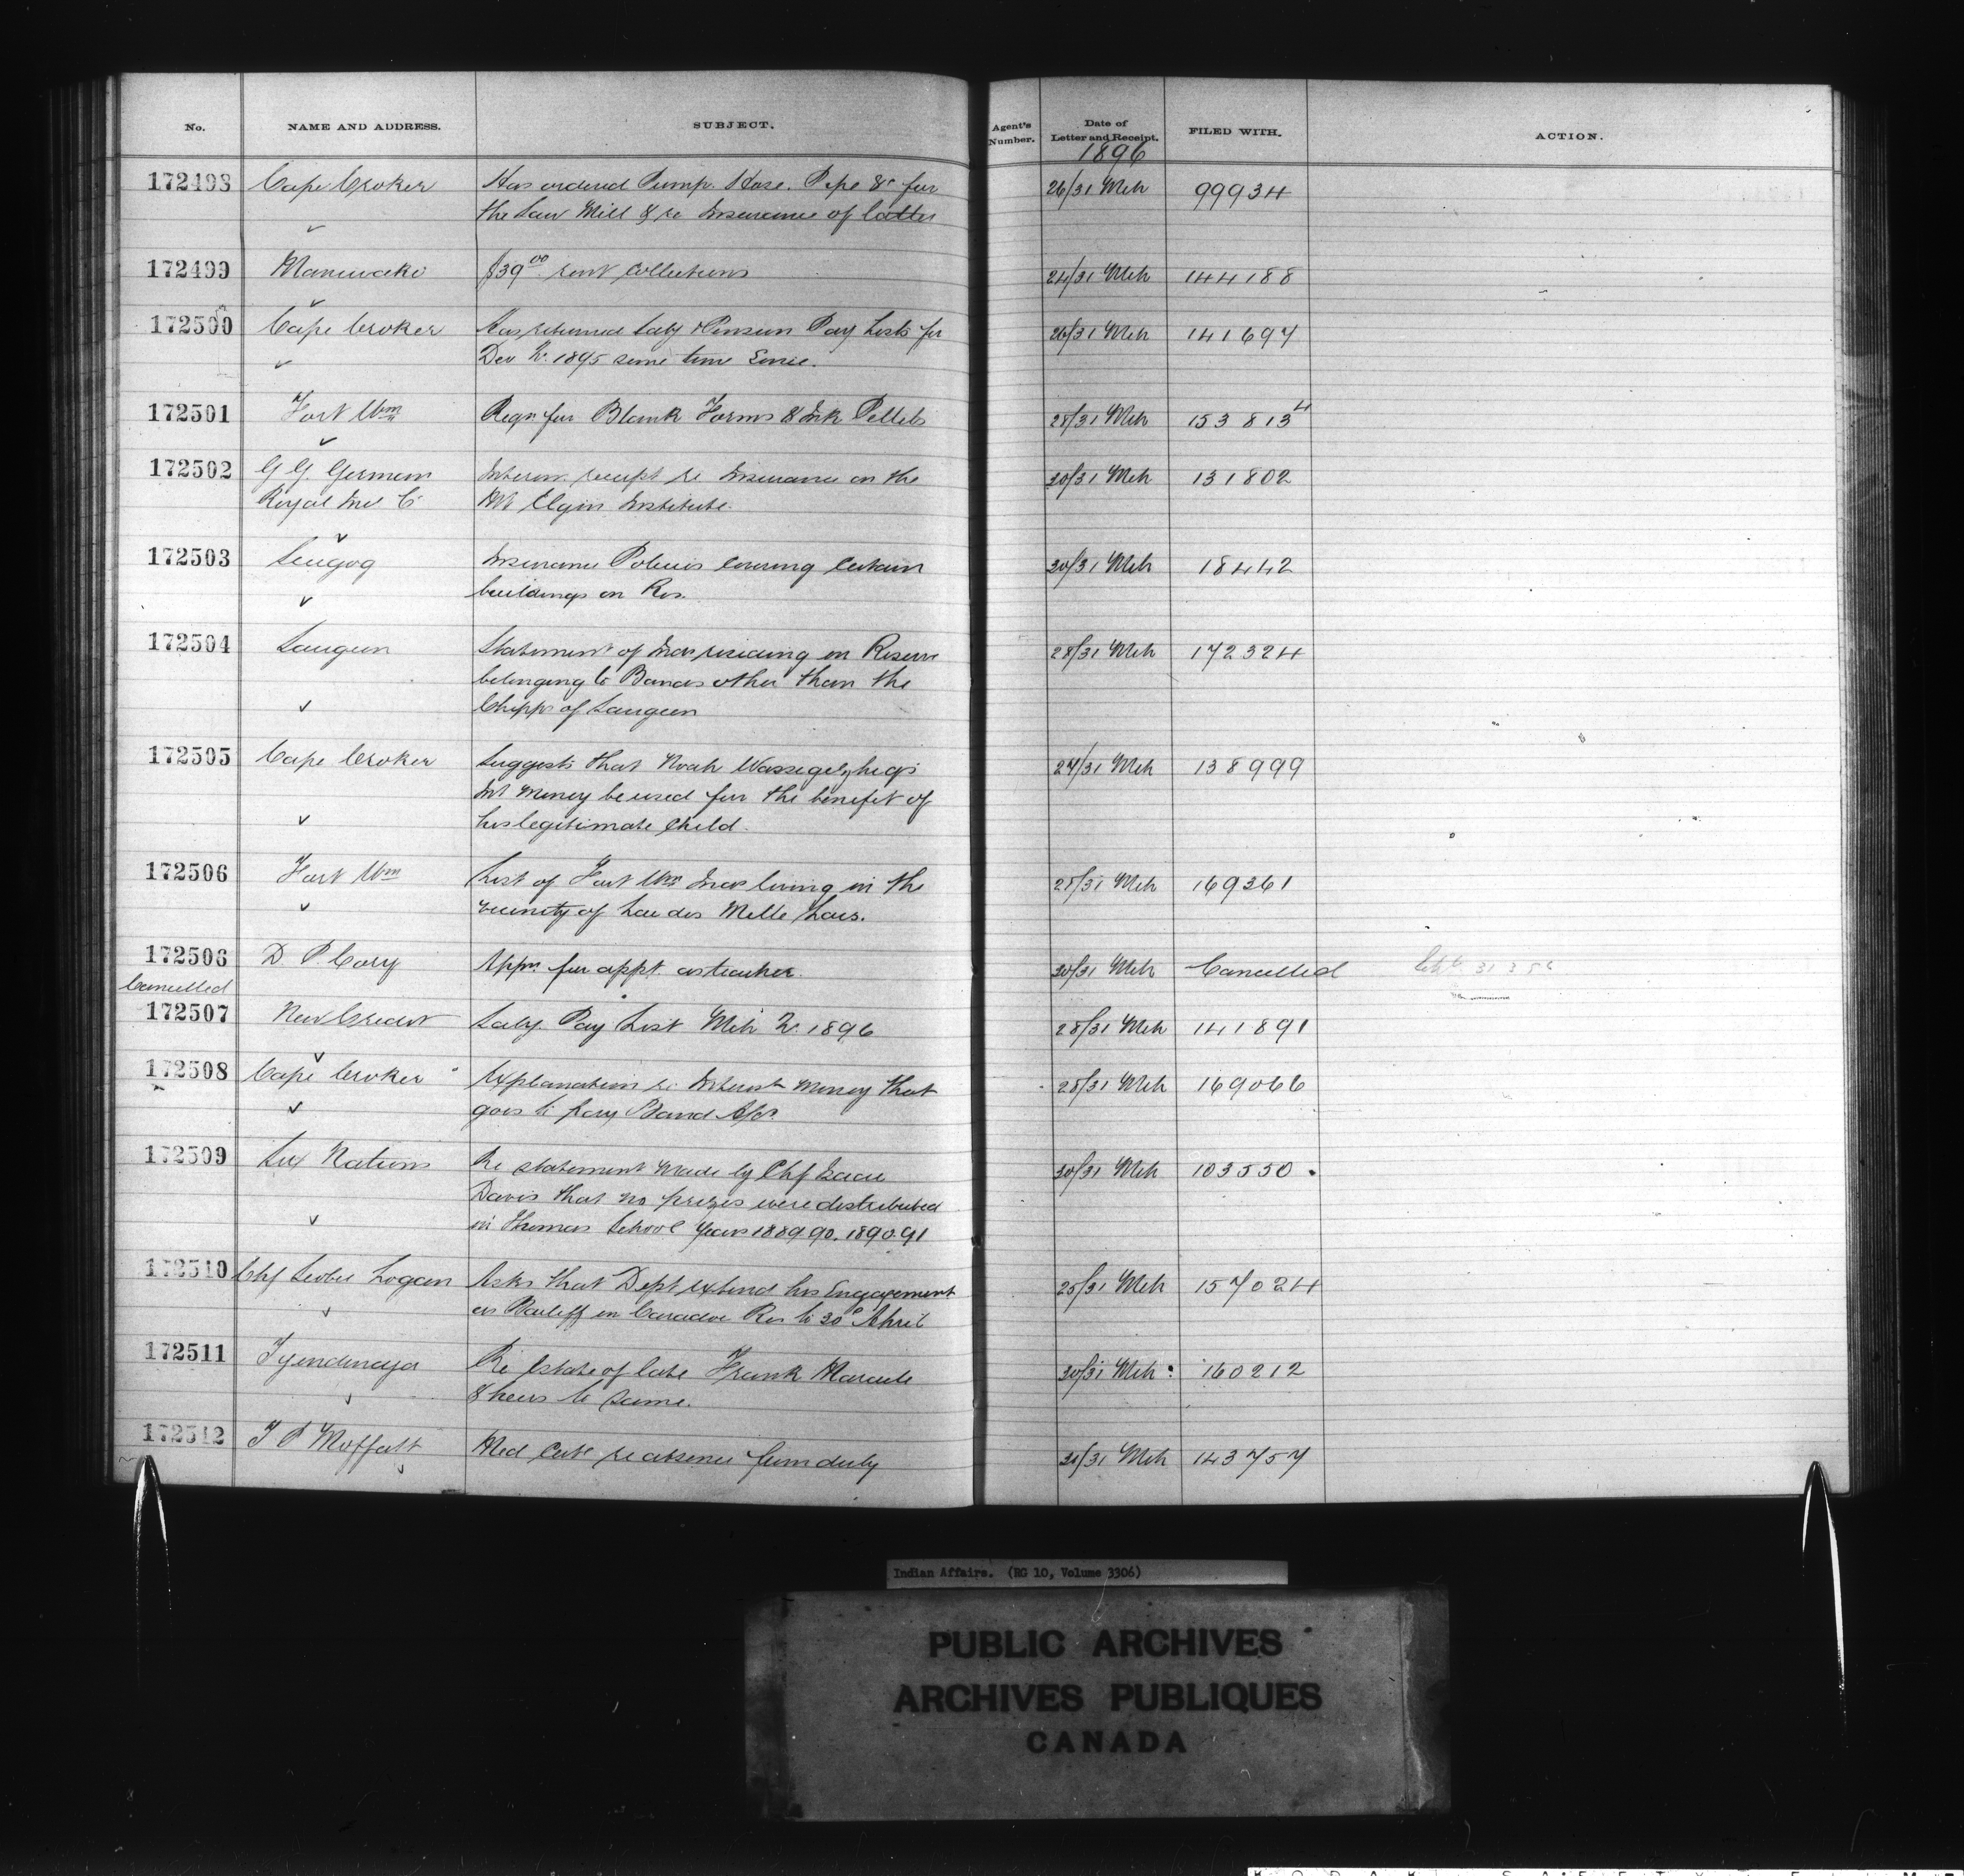 No. NAME AND ADDRESS. SUBJECT. Agent's Number. Date of Letter and Receipt. FILED WITH. ACTION.
1896
172498 Cape Croker Has ordered Pump. Hose. Pipe &c for 26/31 Mch 99934
the Saw Mill & re Insurance of latter
172499 Maniwaki $39.00 rent collections 24/31 Mch 144188
172500 Cape Croker Has returned Saly & Pension Pay Lists for 26/31 Mch 141697
Dec Qr. 1895 some time since.
172501 Fort Wm Reqn for Blank Forms & Ink Pellets 28/31 Mch 153813 4
172502 G G. German Interim receipt re Insurance on the 30/31 Mch 131802
Royal Ins Co Mt Elgin Institute.
172503 Scugog Insurance Policies covering certain 30/31 Mch 18442
buildings on Res.
172504 Saugeen Statement of Inds residing on Reserve 28/31 Mch 172324
belonging to Bands other than the
Chipps of Saugeen
172505 Cape Croker Suggests that Noah 27/31 Mch 138999
Int Money be used for the benefit of
his legitimate child.
172506 Fort Wm List of Fort Wm Inds living in the 28/31 Mch 169361
vicinity of Lac des Mille Lacs.
172506 D. P. Cory Appn for appt. as teacher. 30/31 Mch Cancelled
Cancelled
172507 New Credit Saly. Pay List Mch Qr. 1896 28/31 Mch 141891
172508 Cape Croker Explanation re Interest Money that 28/31 Mch 169066
goes to pay Band
172509 Six Nations Re statement made by Chf Isaac 30/31 Mch 103550
Davis that no prizes were distributed
in Thomas School years 1889.90. 1890.91
172510 Chf Logan Asks that Dept extend his Engagement 25/31 Mch 157024
as Bailiff on Caradoc Res to 30th April
172511 Tyendinaga Re Estate of late Frank Maracle 30/31 Mch 160212
& heirs to same.
172512 T P Moffatt Med Cert re absence from duty 31/31 Mch 143757
Indian Affairs. (RG 10, Volume 3306)
PUBLIC ARCHIVES
ARCHIVES PUBLIQUES
CANADA